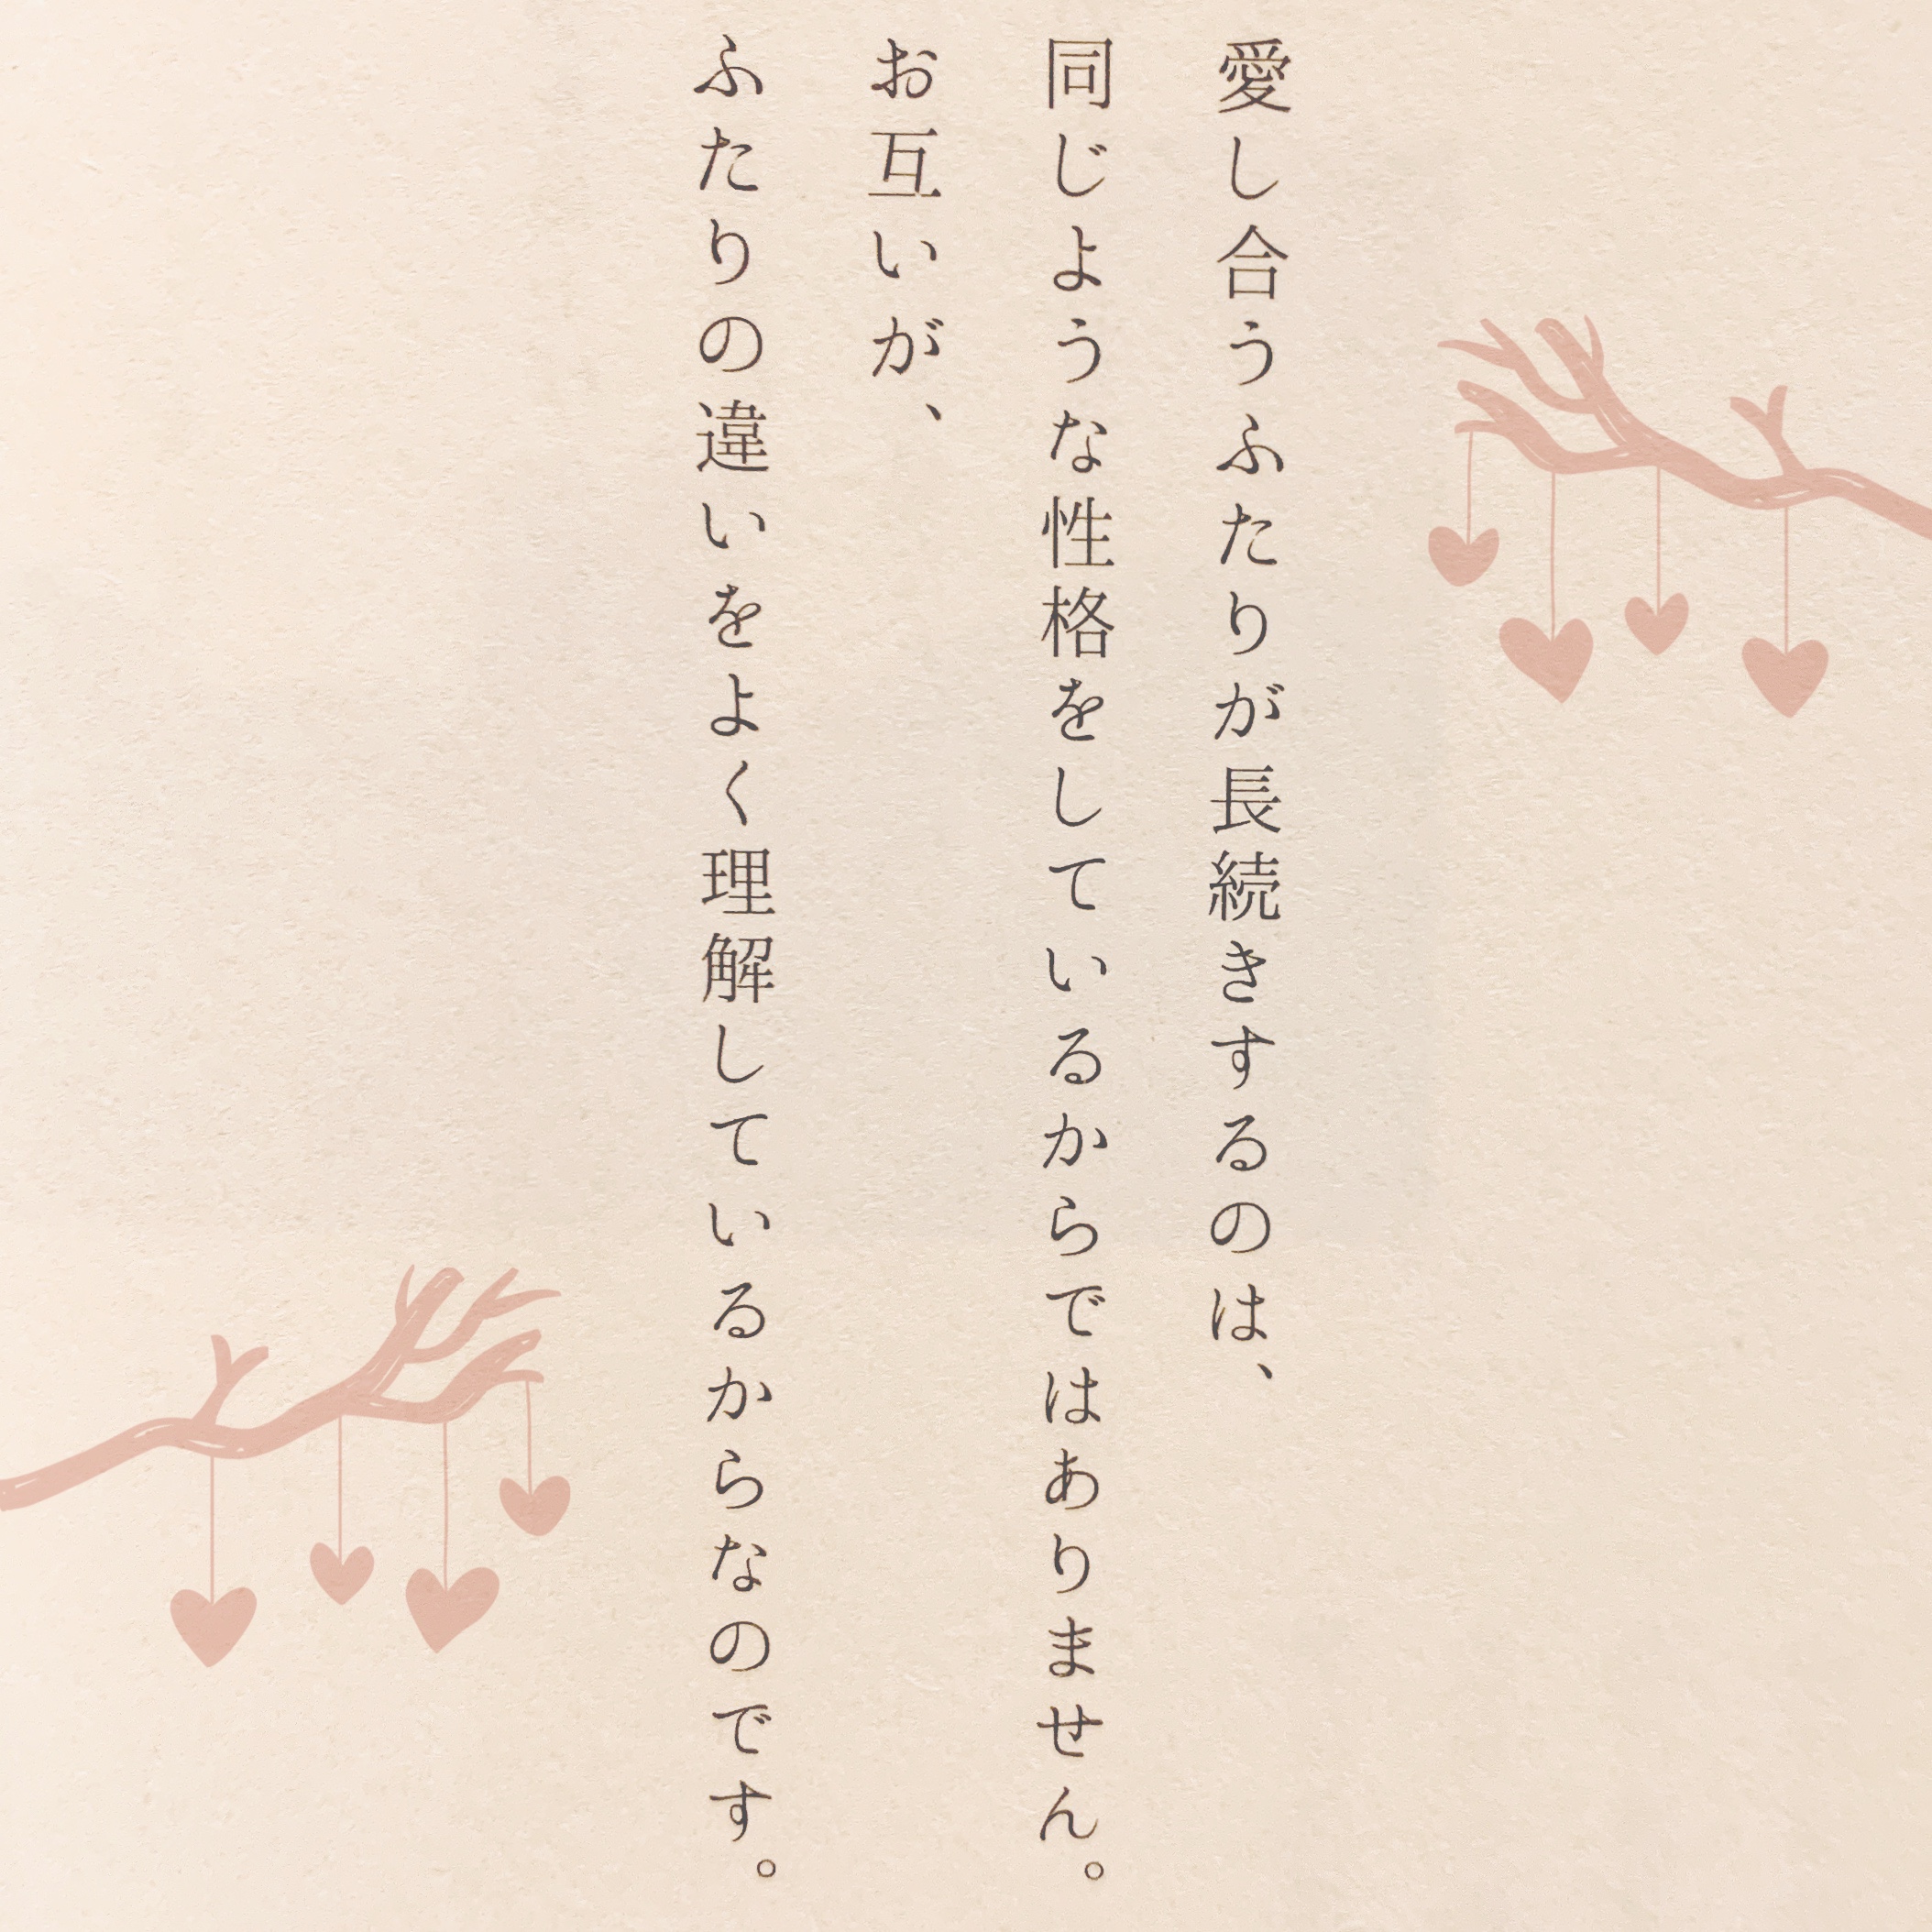 愛し合うふたりが長続きするのは、
同じような性格をしているからではありません。
お互いが、
ふたりの違いをよく理解しているからなのです。